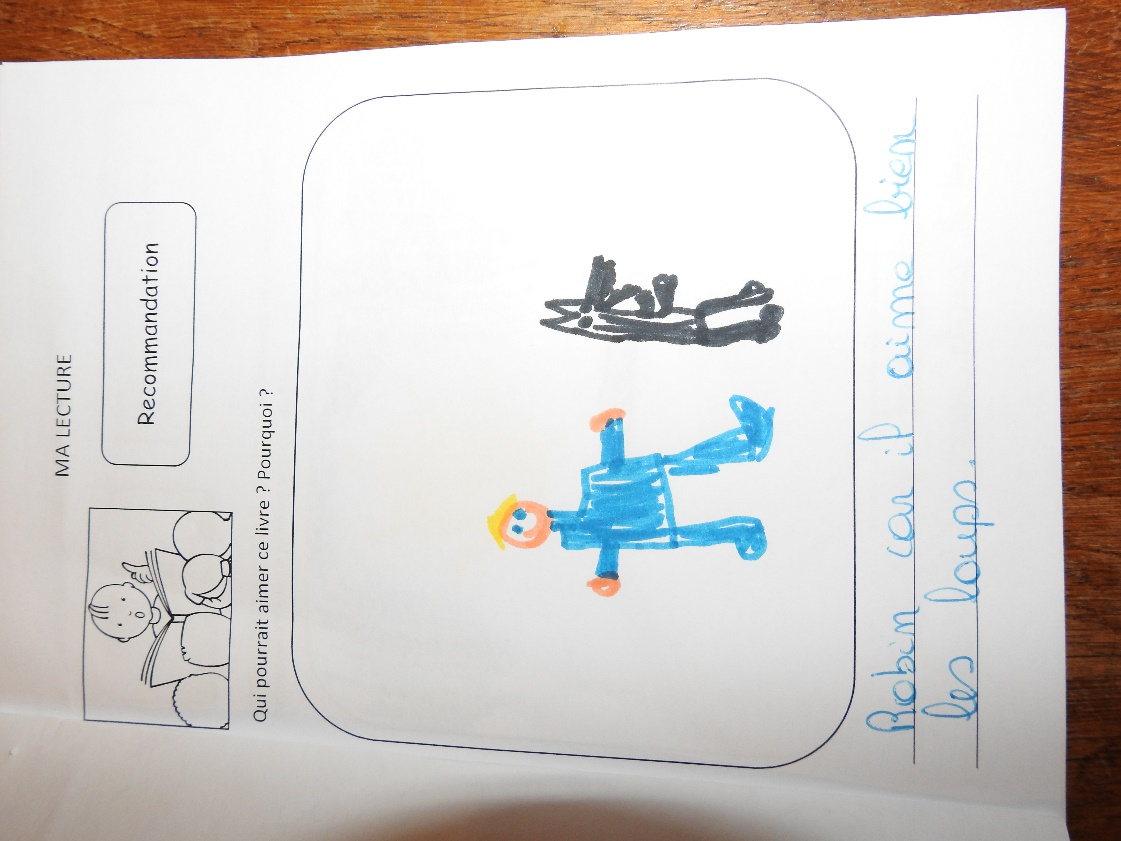 MA LECTURE
Recommandation
Qui pourrait aimer ce livre ? Pourquoi ?
Robin car il aime bien
les loups.